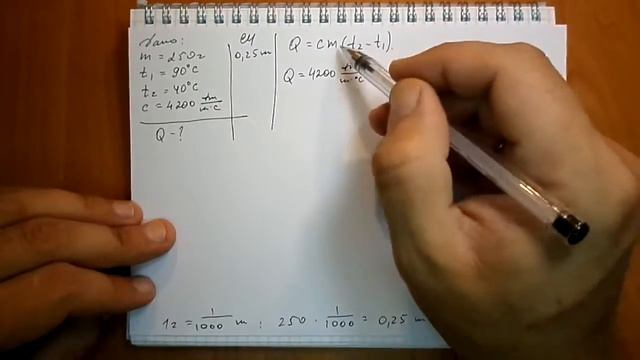 Дано:
m = 250г
t₁ = 90°C
t₂ = 40°C
c = 4200 Дж/кг·°C
Q - ?
СИ
0,25 кг
Q = cm(t₂ - t₁).
Q = 4200 Дж/кг·°C
1г = 1/1000 кг ; 250 · 1/1000 = 0,25 кг